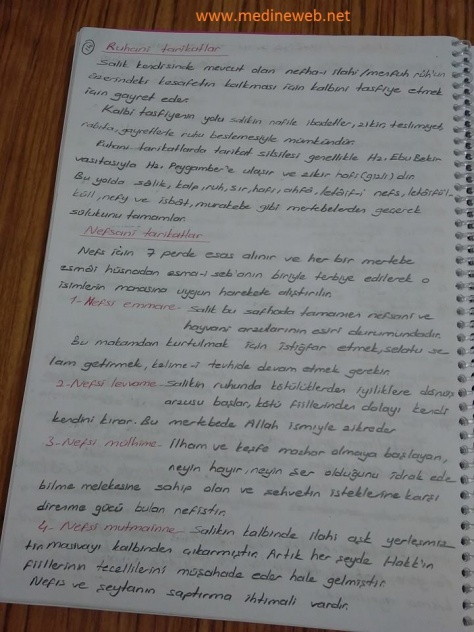 www.medineweb.net
Ruhani tarikatlar
Salik kendisinde mevcut olan nefha-i ilahi/menfuh rûh'un
üzerindeki kesafetin kalkması için kalbini tasfiye etmek
için gayret eder.
Kalbi tasfiyenin yolu salikin nafile ibadetler, zikir, teslimiyet,
rabıta, gayretlerle ruhu beslemesiyle mümkündür.
Ruhani tarikatlarda tarikat silsilesi genellikle Hz. Ebu Bekir
vasıtasıyla Hz. Peygamber'e ulaşır ve zikir hafi (gizli) dir.
Bu yolda sâlik, kalp, ruh, sır, hafi, ahfâ, letâif-i nefs, letâifül-
küll, nefy ve isbât, murakebe gibi mertebelerden geçerek
sülukunu tamamlar.
Nefsani tarikatlar
Nefs için 7 perde esas alınır ve her bir mertebe
esmâi hüsnadan esma-i seb'anın biriyle terbiye edilerek o
isimlerin manasına uygun harekete alıştırılır.
1- Nefsi emmare- Salik bu safhada tamamen nefsani ve
hayvani arzularının esiri durumundadır.
Bu makamdan kurtulmak için istiğfar etmek, selatu se
lam getirmek, kelime-i tevhide devam etmek gerekir.
2- Nefsi levvame- Salikin ruhunda kötülüklerden iyiliklere dönüş
arzusu başlar, kötü fiillerinden dolayı kendi
kendini kınar. Bu mertebede Allah ismiyle zikreder
3- Nefsi mülhime- İlham ve keşfe mazhar olmaya başlayan,
neyin hayır, neyin şer olduğunu idrak ede
bilme melekesine sahip olan ve şehvetin isteklerine karşı
direnme gücü bulan nefistir.
4- Nefsi mutmainne- Salikin kalbinde ilahi aşk yerleşmiş
tir. masivayı kalbinden çıkarmıştır. Artık her şeyde Hakk'ın
fiillerinin tecellilerini müşahade eder hale gelmiştir.
Nefis ve şeytanın saptırma ihtimali vardır.